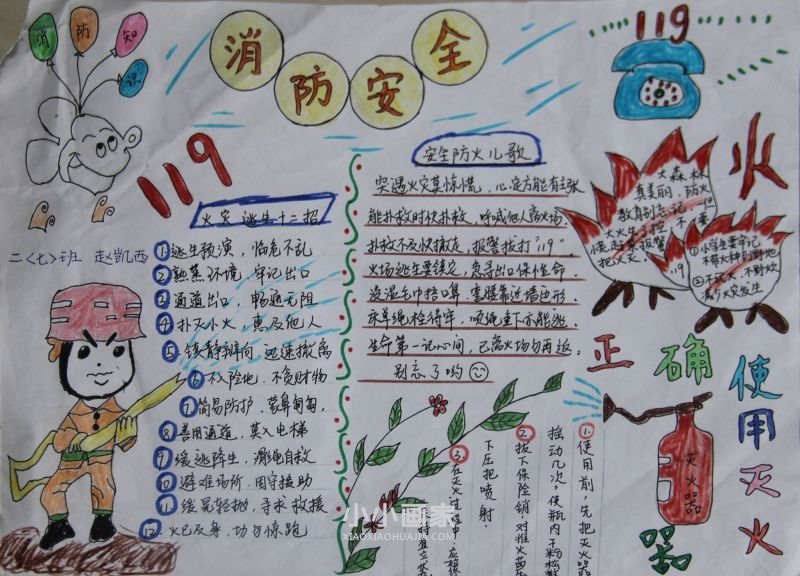 消防知识
消防安全
119
119
火灾逃生十二招
二〈七〉班 赵凯西
①逃生预演，临危不乱
②熟悉环境，牢记出口
③通道出口，畅通无阻
④扑灭小火，惠及他人
⑤镇静辨向，迅速撤离
⑥不入险地，不贪财物
⑦简易防护，蒙鼻匍匐，
⑧善用通道，莫入电梯
⑨缓逃降生，滑绳自救
⑩避难场所，固守援助
⑪缓晃轻抛，寻求救援
⑫火已及身，切勿惊跑
安全防火儿歌
突遇火灾莫惊慌，心定方能有主张
能扑救时快扑救，呼喊他人离火场，
扑救不及快撤走，报警拨打"119"
火场逃生要镇定，
保性命
浸湿毛巾捂口鼻，
靠近墙边形
床单绳栓得牢，顺绳
下亦能逃
生命第一记心间，已离火场勿再返，
别忘了哟
火
大森林
真美丽，防火
教育别忘记
119
①小学生要牢记
②不玩火，不野炊
减少火灾发生
正确使用灭火器
灭火器
1.使用前，先把灭火器
摇动几次，使瓶内干粉松散
2.拔下保险销，对准火苗
下压把喷射
3.在灭火过程中，应始终
小小画家
XIAOXIAOHUAJIA.COM